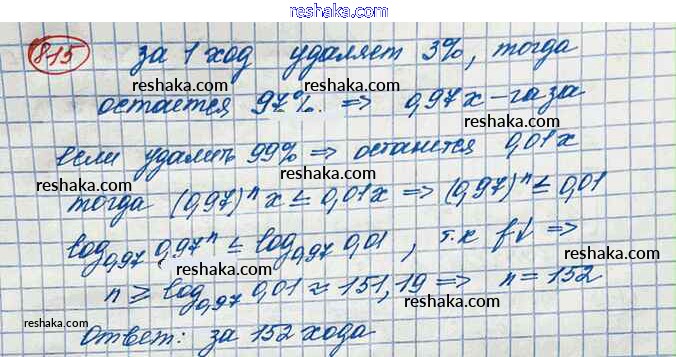 reshak.ru
815 за 1 ход удаляет 3%, тогда
reshaka.com reshaka.com
остается 97%. => 0,97x - газа
reshaka.com
если удалить 99% => останется 0,01x
reshaka.com reshaka.com
тогда (0,97)ⁿx ≤ 0,01x => (0,97)ⁿ ≤ 0,01
reshaka.com
log₀,₉₇ 0,97ⁿ ≤ log₀,₉₇ 0,01, т.к f↓ =>
reshaka.com reshaka.com
n ≥ log₀,₉₇ 0,01 ≈ 151,19 => n = 152
reshaka.com reshaka.com
Ответ: за 152 хода
reshaka.com
reshak.ru